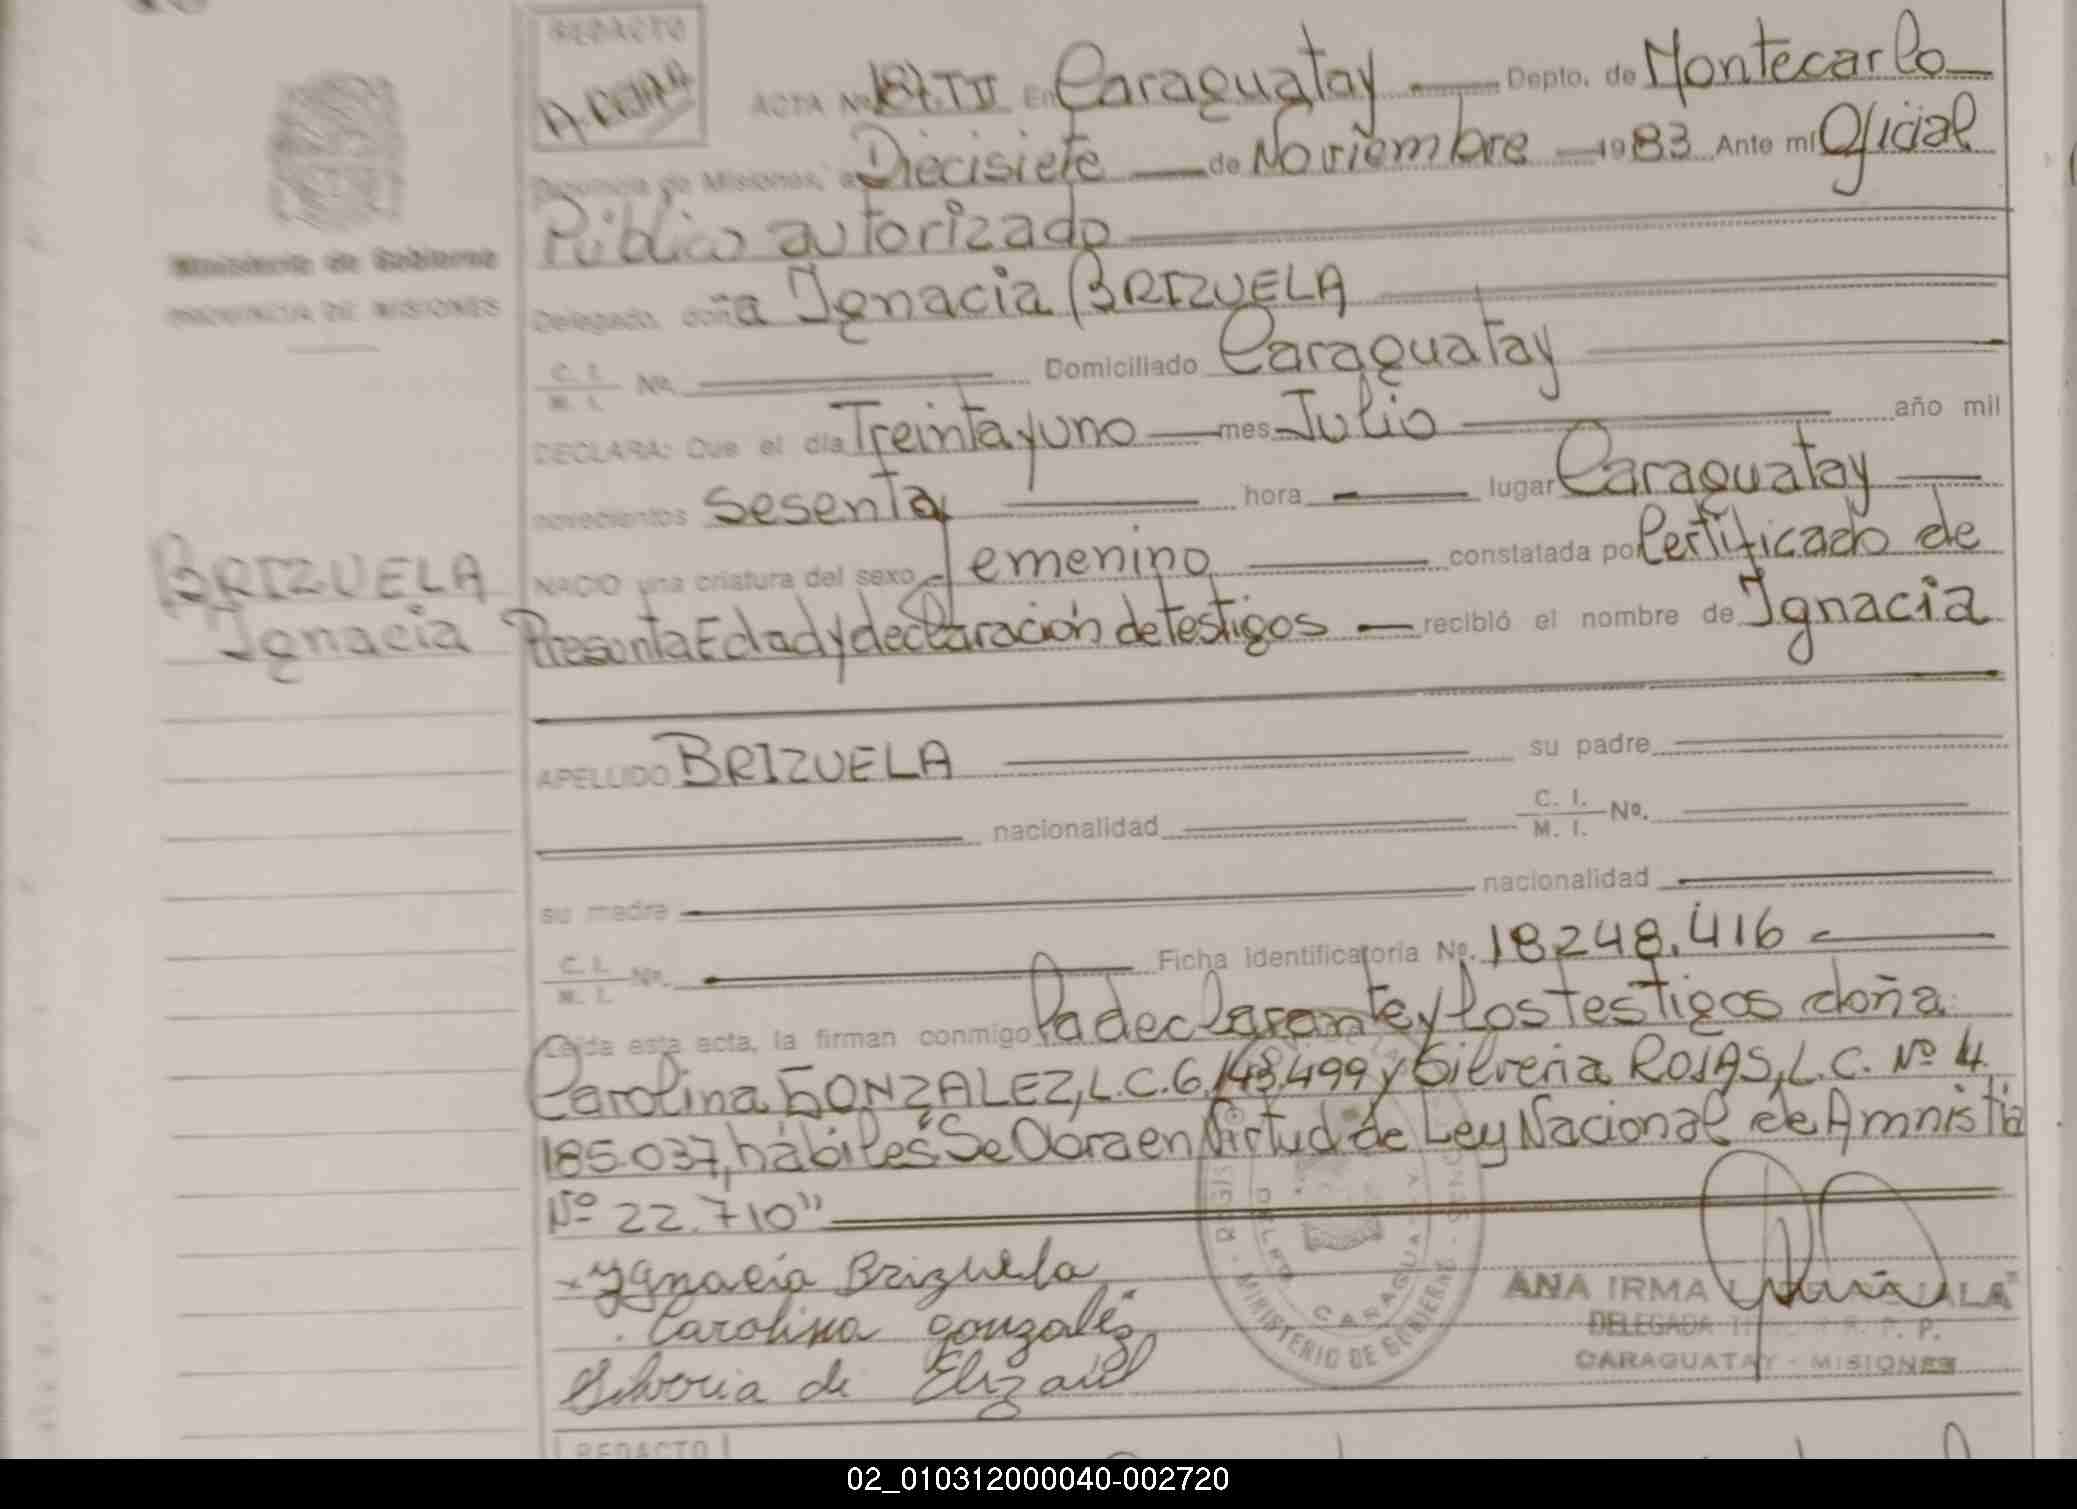 REDACTO
ACTA Nº 187.TII En Caraguatay Depto. de Montecarlo
Provincia de Misiones, a Diecisiete de Noviembre 1983 Ante mi Oficial
Público autorizado
Ministerio de Gobierno
PROVINCIA DE MISIONES
Delegado, doña Ignacia BRIZUELA
C. I. M. I. Nº. Domiciliado Caraguatay
DECLARA: Que el día Treinta y uno mes Julio año mil
novecientos sesenta hora lugar Caraguatay
NACIO una criatura del sexo femenino constatada por Certificado de
BRIZUELA
Ignacia
Presunta Edad y declaración de testigos recibió el nombre de Ignacia
APELLIDO BRIZUELA su padre
nacionalidad C. I. M. I. Nº.
su madre nacionalidad
C. I. M. I. Nº. Ficha identificatoria Nº. 18.248.416
Leída esta acta, la firman conmigo la declarante y los testigos doña
Carolina GONZALEZ, L.C. 6.148.499 y Silveria ROJAS, L.C. Nº 4.
185.037, hábiles "Se Obra en Virtud de Ley Nacional de Amnistia
Nº 22.710"
Ygnacia Brizuela
Carolina gonzalez
Silveria de
ANA IRMA
DELEGADA
CARAGUATAY - MISIONES
MINISTERIO DE GOBIERNO
REDACTO
02_010312000040-002720